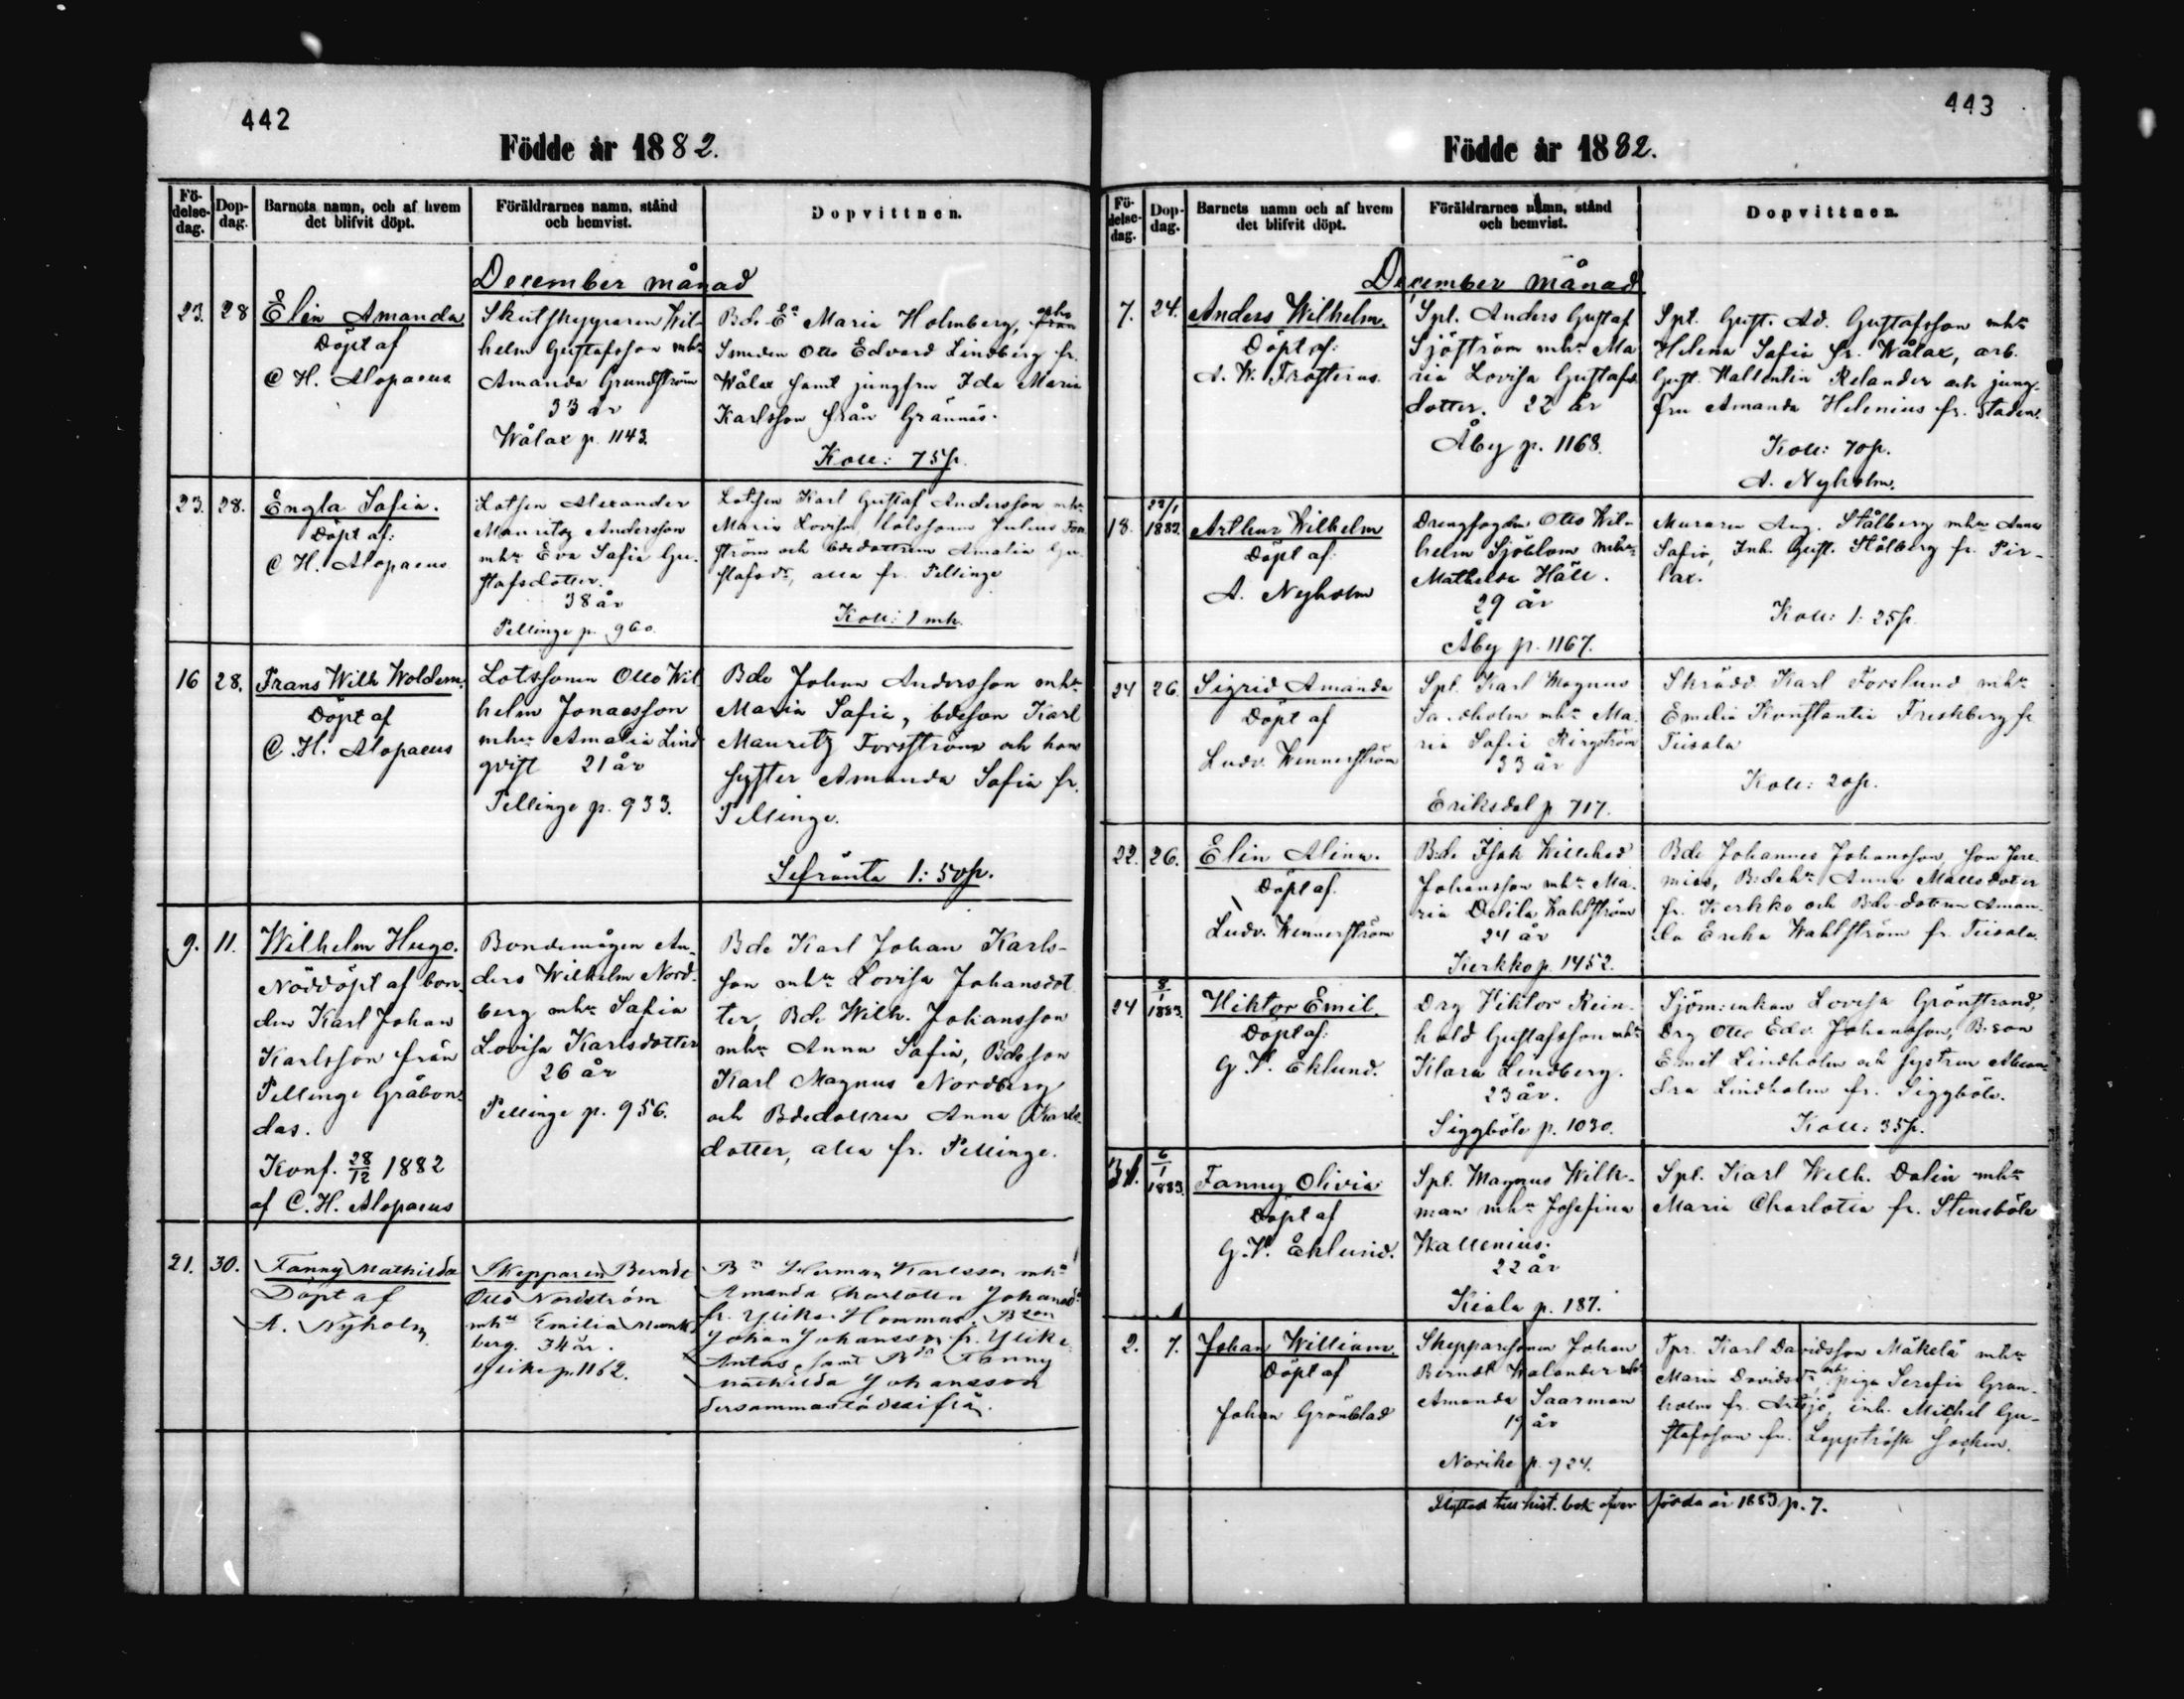 442
Födde år 1882.
Fö-
delse-
dag.
Dop-
dag.
Barnets namn, och af hvem
det blifvit döpt.
Föräldrarnes namn, stånd
och hemvist.
Dopvittnen.
December månad
23. 28
Elin Amanda
Döpt af
C H. Alopaeus
Skutskepparen Wil-
helm Gustafsson mhu
Amanda Grundström
33 år
Wålax p. 1143.
Bde Ea Maria Holmberg, från
Smeden Otto Edvard Lindberg fr.
Wålax samt jungfrun Ida Maria
Karlsson från Grännäs.
Koll: 75p.
23. 28.
Engla Sofia.
Döpt af:
C H. Alopaeus
Lotsen Alexander
Mauritz Andersson
mhu Eva Sofia Gu-
stafsdotter.
38 år
Pellinge p. 960.
Lotsen Karl Gustaf Andersson mhu
Maria Lovisa, lotssonen Julius
ström och bdedottren Amalia Gu-
stafsdr, alla fr. Pellinge
Koll: 1 mk.
16 28.
Frans Wilh Woldem.
Döpt af
C. H. Alopaeus
Lotssonen Otto Wil
helm Jonaesson
mhu Amalia Lind
qvist 21 år
Pellinge p. 933.
Bde Johan Andersson mhu
Maria Sofia, bdeson Karl
Mauritz Forsström och hans
syster Amanda Sofia fr.
Pellinge.
1: 50p.
9. 11.
Wilhelm Hugo.
Nöddöpt af bon-
den Karl Johan
Karlsson från
Pellinge Gråbon-
das.
Konf. 28/12 1882
af C. H. Alopaeus
Bondemågen An-
ders Wilhelm Nord-
berg mhu Sofia
Lovisa Karlsdotter
26 år
Pellinge p. 956.
Bde Karl Johan Karls-
son mhu Lovisa Johansdot
ter, Bde Wilh. Johansson
mhu Anna Sofia, Bdeson
Karl Magnus Nordberg
och Bdedottren Anna Karls-
dotter, alla fr. Pellinge.
21. 30.
Fanny Mathilda
Döpt af
A. Nyholm
Skepparen Berndt
Otto Nordström
mhu Emilia Munk
berg. 34 år.
Ylike p. 1162.
Bn Herman Karlsson mhu
Amanda Charlotta Johansdr
fr. Ylike Hommas, Bson
Johan Johansson fr. Ylike
Antas, samt Bda Fanny
Mathilda Johansson
dersammastädesifrån.
443
Födde år 1882.
Fö-
delse-
dag.
Dop-
dag.
Barnets namn och af hvem
det blifvit döpt.
Föräldrarnes namn, stånd
och hemvist.
Dopvittnen.
December månad
7. 24.
Anders Wilhelm.
Döpt af:
A. W. Frosterus.
Spl. Anders Gustaf
Sjöström mhu Ma
ria Lovisa Gustafs
dotter. 22 år
Åby p. 1168.
Spl. Gust. Ad. Gustafsson mhu
Helena Sofia fr. Wålax, arb.
Gust. Wallentin Relander och jung-
frun Amanda Helenius fr. Staden.
Koll: 70p.
A. Nyholm.
18. 1883.
Arthur Wilhelm
Döpt af:
A. Nyholm
Drengfogden Otto Wil-
helm Sjöblom mhu
Mathilda Häll.
29 år
Åby p. 1167.
Muraren Aug. Stålberg mhu Anna
Sofia, Inh. Gust. Stålberg fr. Pir-
lax.
Koll: 1: 25p.
24 26.
Sigrid Amanda
Döpt af
Ludv. Wennerström
Spl. Karl Magnus
mhu Ma-
ria Sofia Ringström
33 år
Eriksdal p 717.
Skrädd. Karl Forslund mhu
Emelia Konstantia Freskberg fr
Tiisala
Koll: 20p.
22. 26.
Elin Alina.
Döpt af.
Ludv. Wennerström
Bde Isak Willehad
Johansson mhu Ma-
ria Delila Wahlström
24 år
Kerkko p. 1452.
Bde Johannes Johansson, son Jere-
mias, Bdehu Anna Matsdoter
fr. Kerkko och Bde-dotren Aman-
da Erika Wahlström fr. Tiisala.
24 8/1 1883.
Wiktor Emil.
Döpt af:
G. V. Eklund.
Drg Viktor Rein-
hold Gustafsson mhu
Klara Lindberg.
23 år.
Siggböle p. 1030.
Sjöm: enkan Lovisa Grönstrand,
Drg Otto Edv. Johansson, B:son
Emil Lindholm och systren Alexan-
dra Lindholm fr. Siggböle.
Koll: 35p.
31. 6/1 1883.
Fanny Olivia
Döpt af
G. V. Eklund.
Spl. Magnus Wilk-
man mhu Josefina
Wallenius.
22 år
Kiala p. 187.
Spl. Karl Wilh. Dalin mhu
Maria Charlotta fr. Stensböle
2. 7.
Johan William.
Döpt af
Johan Grönblad
Skepparsonen Johan
Berndt Walander mhu
Amanda Saarman
19 år
Norike p. 924.
Tpr. Karl Davidsson Mäkelä mhu
Maria Davidsdr, och piga Serafia Gran-
holm fr. Artsjö, inh. Michel Gu-
stafsson fr. Lappträsk socken.
Flyttad till hist. bok öfver födda år 1883 p. 7.